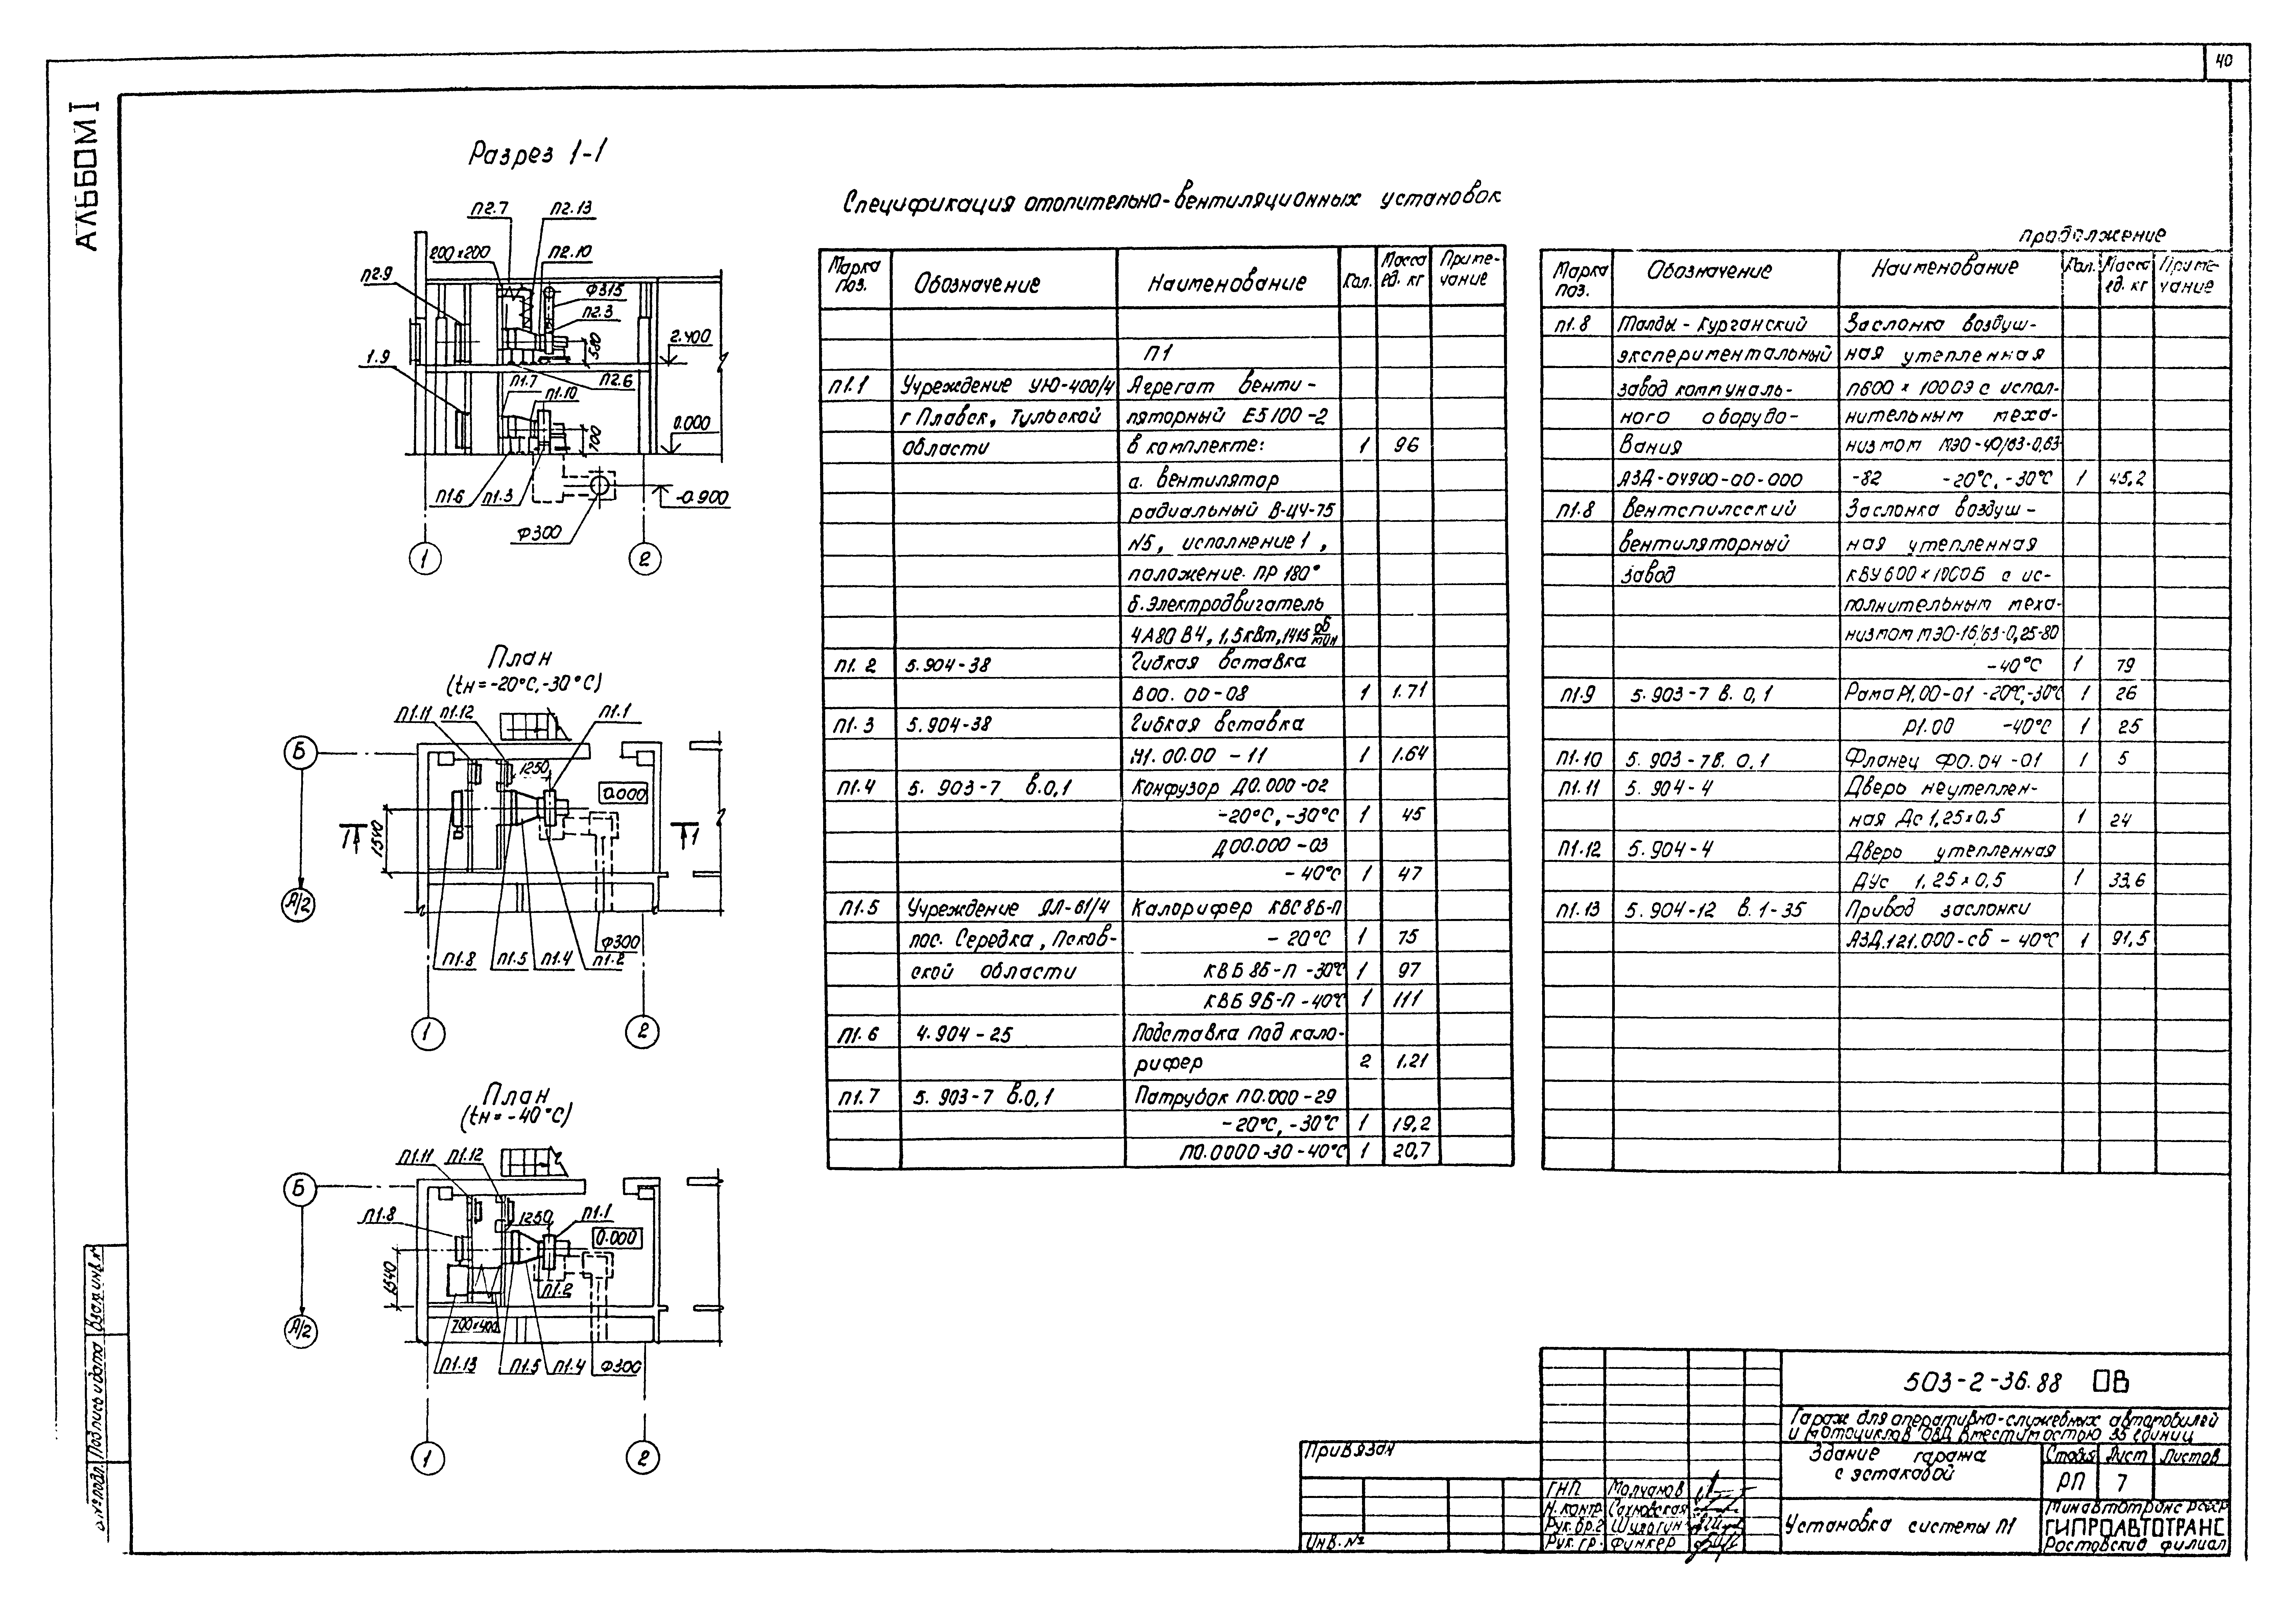 40
АЛЬБОМ I
Разрез 1-1
П2.7 П2.13
200×200 П2.10
П2.9
Ф315
П2.3
580
2.400
1.9
П1.7 П2.6
П1.10
0.000
700
П1.6 П1.3
-0.900
Ф300
1 2
План
(tн=-20°С,-30°С)
П1.11 П1.12 П1.1
Б
1250
0.000
1540
1 1
А/2
Ф300
П1.8 П1.5 П1.4 П1.2
1 2
План
(tн=-40°С)
П1.11 П1.12
Б
П1.8 1250 П1.1
0.000
1540
П1.2
А/2
700×400
П1.13 П1.5 П1.4 Ф300
1 2
Спецификация отопительно-вентиляционных установок
Марка поз. Обозначение Наименование Кол. Масса ед. кг Приме-чание
П1
П1.1 Учреждение УЮ-400/4 Агрегат венти-
г Плавск, Тульской ляторный Е5100-2
области в комплекте: 1 96
а. вентилятор
радиальный В-Ц4-75
N5, исполнение 1,
положение ПР 180°
б. Электродвигатель
4А80В4, 1,5кВт, 1415 об/мин
П1.2 5.904-38 Гибкая вставка
В00.00-08 1 1.71
П1.3 5.904-38 Гибкая вставка
Н1.00.00-11 1 1.64
П1.4 5.903-7 в.0,1 Конфузор Д0.000-02
-20°С,-30°С 1 45
Д00.000-03
-40°С 1 47
П1.5 Учреждение ЯЛ-61/4 Калорифер КВС8Б-П
пос. Середка, Псков- -20°С 1 75
ской области КВБ8Б-П -30°С 1 97
КВБ9Б-П -40°С 1 111
П1.6 4.904-25 Подставка под кало-
рифер 2 1,21
П1.7 5.903-7 в.0,1 Патрубок П0.000-29
-20°С,-30°С 1 19,2
П0.0000-30 -40°С 1 20,7
продолжение
Марка поз. Обозначение Наименование Кол. Масса ед. кг Приме-чание
П1.8 Талды-Курганский Заслонка воздуш-
экспериментальный ная утепленная
завод коммуналь- П600×1000Э с испол-
ного оборудо- нительным меха-
вания низмом МЭО-40/63-0,63-
АЗД-04900-00-000 -82 -20°С,-30°С 1 45,2
П1.8 Вентспилсский Заслонка воздуш-
вентиляторный ная утепленная
завод КВУ600×1000Б с ис-
полнительным меха-
низмом МЭО-16/63-0,25-80
-40°С 1 79
П1.9 5.903-7 в.0,1 Рама Р1.00-01 -20°С,-30°С 1 26
Р1.00 -40°С 1 25
П1.10 5.903-7в.0,1 Фланец Ф0.04-01 1 5
П1.11 5.904-4 Дверь неутеплен-
ная Дс 1,25×0.5 1 24
П1.12 5.904-4 Дверь утепленная
ДУс 1,25×0,5 1 33,6
П1.13 5.904-12 в.1-35 Привод заслонки
АЗД.121.000-сб -40°С 1 91,5
503-2-36.88 ОВ
Гараж для оперативно-служебных автомобилей
и мотоциклов ОВД вместимостью 35 единиц
Здание гаража
с эстакадой
Стадия Лист Листов
РП 7
Установка системы П1
Минавтотранс РСФСР
ГИПРОАВТОТРАНС
Ростовский филиал
Привязан
Инв. №
ГИП Молчанов
Н. контр. Сахновская
Рук. бр.2 Шулагин
Рук. гр. Финкер
Взам. инв. №
Подпись и дата
№ подл.